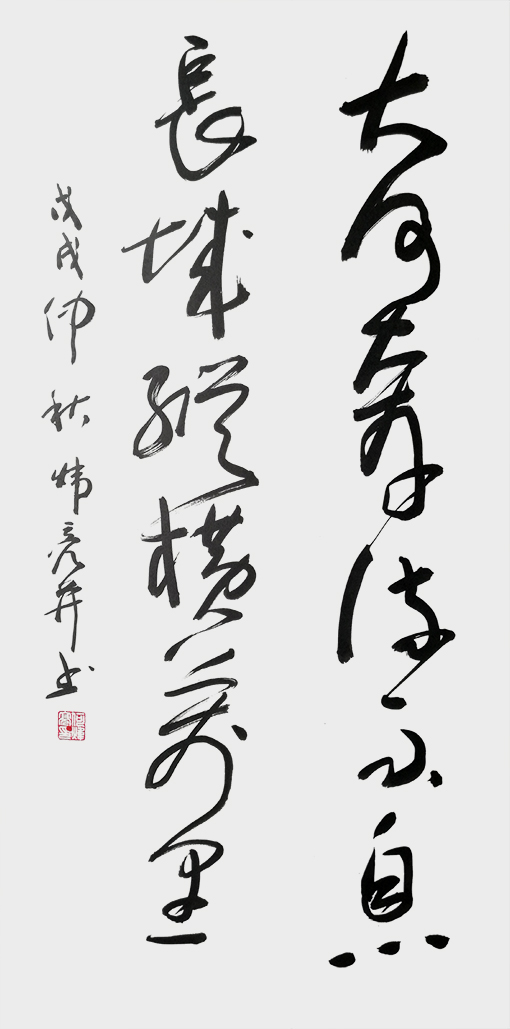 大河奔流不息
長城縱橫萬里
戊戌仲秋煒亮并书